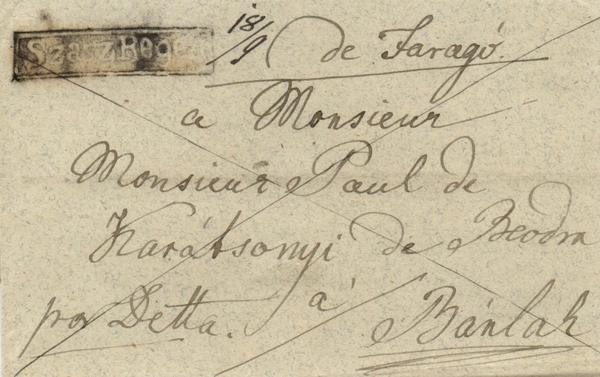 Szasz Regen 18/9 de Faragó
a Monsieur
Monsieur Paul de
Karátsonyi de Beodra
à
par Detta. Bánlak